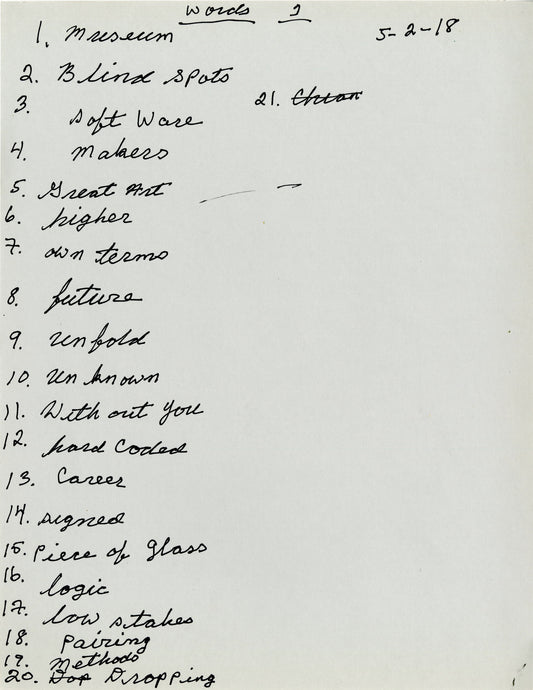 Words 1
5-2-18
1. Museum
2. Blind Spots
3. Soft Ware
4. Makers
5. Great Art
6. higher
7. own terms
8. future
9. unfold
10. Un known
11. With out you
12. hard Coded
13. Career
14. signed
15. Piece of Glass
16. logic
17. low stakes
18. Pairing
19. Methods
20. Dop Dropping
21.